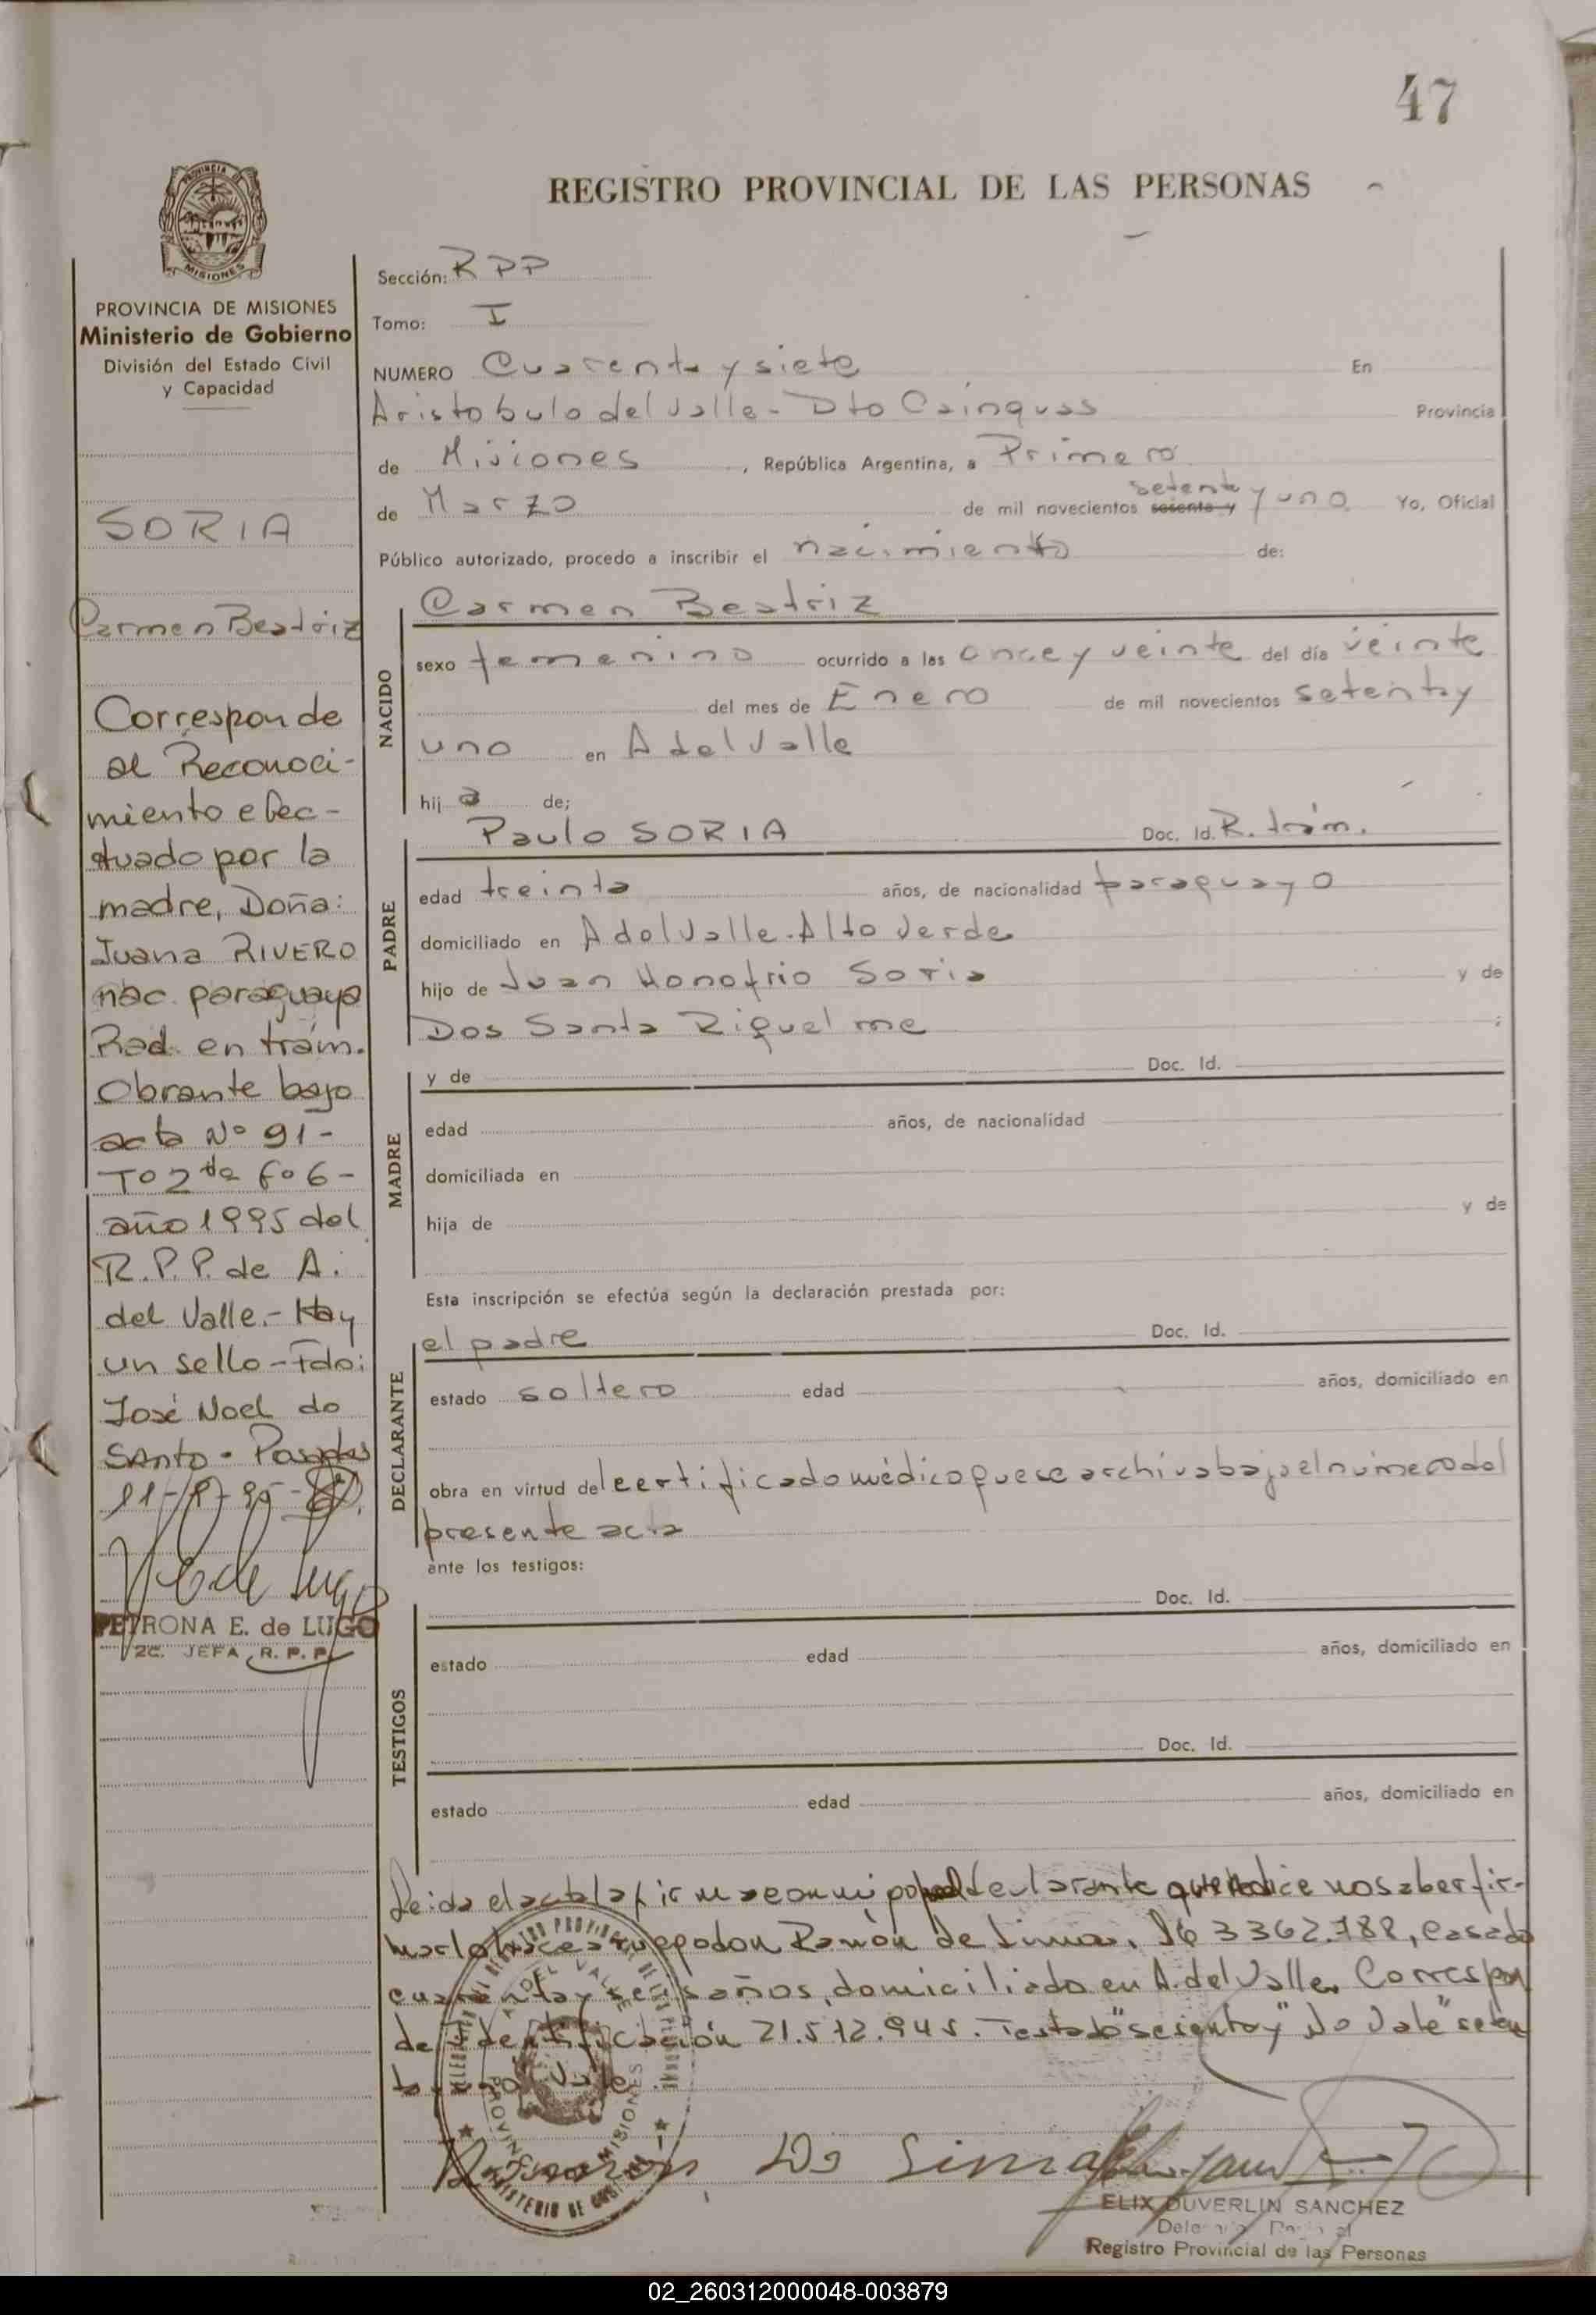 47
REGISTRO PROVINCIAL DE LAS PERSONAS
PROVINCIA DE
MISIONES
PROVINCIA DE MISIONES
Ministerio de Gobierno
División del Estado Civil
y Capacidad
SORIA
Carmen Beatriz
Corresponde
al Reconoci-
miento efec-
tuado por la
madre, Doña:
Juana RIVERO
nac. paraguaya
Rad. en trám.
Obrante bajo
acta Nº 91-
Tº 2da Fº 6-
año 1995 del
R.P.P. de A.
del Valle.- Hay
un sello - Fdo:
José Noel do
Santo - Posadas
PETRONA E. de LUGO
2C. JEFA R. P. P.
Sección: RPP
Tomo: I
NUMERO Cuarenta y siete En
Aristobulo del Valle - Dto Cainguas Provincia
de Misiones , República Argentina, a Primero
de Marzo de mil novecientos sesenta y setenta y uno Yo, Oficial
Público autorizado, procedo a inscribir el nacimiento de:
NACIDO
Carmen Beatriz
sexo femenino ocurrido a las once y veinte del día veinte
del mes de Enero de mil novecientos setenta y
uno en A del Valle
hij a de;
PADRE
Paulo SORIA Doc. Id. R. trám.
edad treinta años, de nacionalidad paraguayo
domiciliado en A del Valle - Alto Verde
hijo de Juan Honofrio Soria y de
Dos Santa Riquelme ;
MADRE
y de Doc. Id.
edad años, de nacionalidad
domiciliada en
hija de y de
Esta inscripción se efectúa según la declaración prestada por:
DECLARANTE
el padre Doc. Id.
estado soltero edad años, domiciliado en
obra en virtud del certificado médico que se archiva bajo el número del
presente acta
ante los testigos:
TESTIGOS
Doc. Id.
estado edad años, domiciliado en
Doc. Id.
estado edad años, domiciliado en
Leida el acta la firma conmigo declarante quien dice no saber fir-
mar lo hace a ruego don Ramón de Lima, 3362.788, casado
cuarenta y seis años, domiciliado en A. del Valle. Correspon
de Identificación 21.512.945. Testado "sesenta y" No Vale "seten
ta y uno" Vale
Ramon De Lima
ELIX DUVERLIN SANCHEZ
Registro Provincial de las Personas
02_260312000048-003879